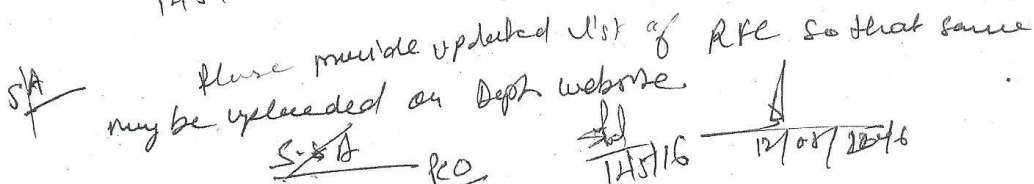 S/A Please provide updated list of RFC so that same
may be uploaded on Deptt website
S.S A PCO 14/5/16 12/05/2016